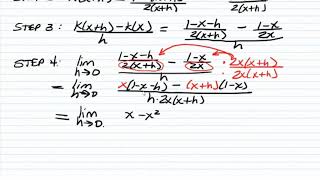 STEP 3: \frac{k(x+h)-k(x)}{h} = \frac{\frac{1-x-h}{2(x+h)} - \frac{1-x}{2x}}{h}
STEP 4: \lim_{h→0} \frac{\frac{1-x-h}{2(x+h)} - \frac{1-x}{2x}}{h} · \frac{2x(x+h)}{2x(x+h)}
= \lim_{h→0} \frac{x(1-x-h) - (x+h)(1-x)}{h·2x(x+h)}
= \lim_{h→0} x-x^2